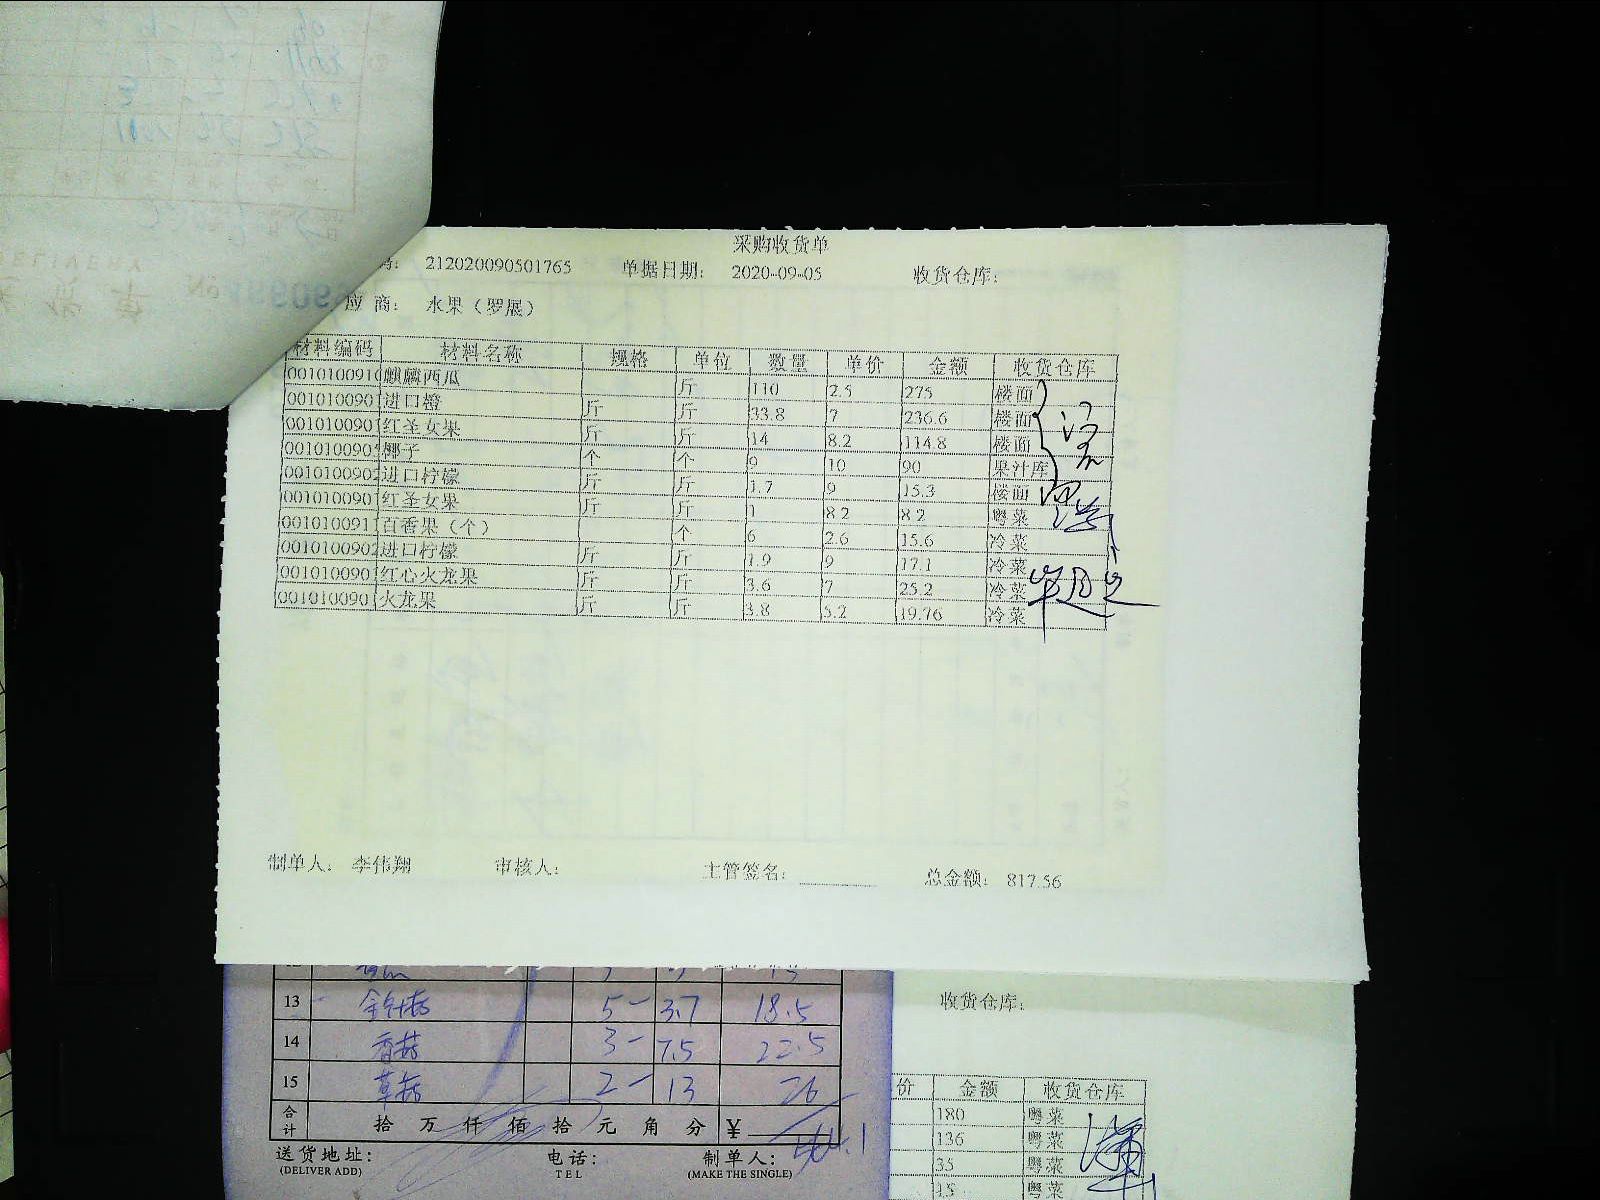 采购收货单
码： 212020090501765 单据日期： 2020-09-05 收货仓库：
应 商： 水果（罗展）
材料编码 材料名称 规格 单位 数量 单价 金额 收货仓库
0010100910 麒麟西瓜 斤 110 2.5 275 楼面
001010090 进口橙 斤 斤 33.8 7 236.6 楼面
001010090 红圣女果 斤 斤 14 8.2 114.8 楼面
001010090 椰子 个 个 9 10 90 果汁库
001010090 进口柠檬 斤 斤 1.7 9 15.3 楼面
001010090 红圣女果 斤 斤 1 8.2 8.2 粤菜
001010091 百香果（个） 个 6 2.6 15.6 冷菜
001010090 进口柠檬 斤 斤 1.9 9 17.1 冷菜
001010090 红心火龙果 斤 斤 3.6 7 25.2 冷菜
001010090 火龙果 斤 斤 3.8 5.2 19.76 冷菜
制单人： 李伟翔 审核人： 主管签名： 总金额： 817.56
13 金针菇 5 3.7 18.5
14 香菇 3 7.5 22.5
15 草菇 2 13 26
合计 拾 万 仟 佰 拾 元 角 分 ¥
送货地址： 电话： 制单人：
(DELIVER ADD) TEL (MAKE THE SINGLE)
收货仓库：
价 金额 收货仓库
180 粤菜
136 粤菜
35 粤菜
15 粤菜